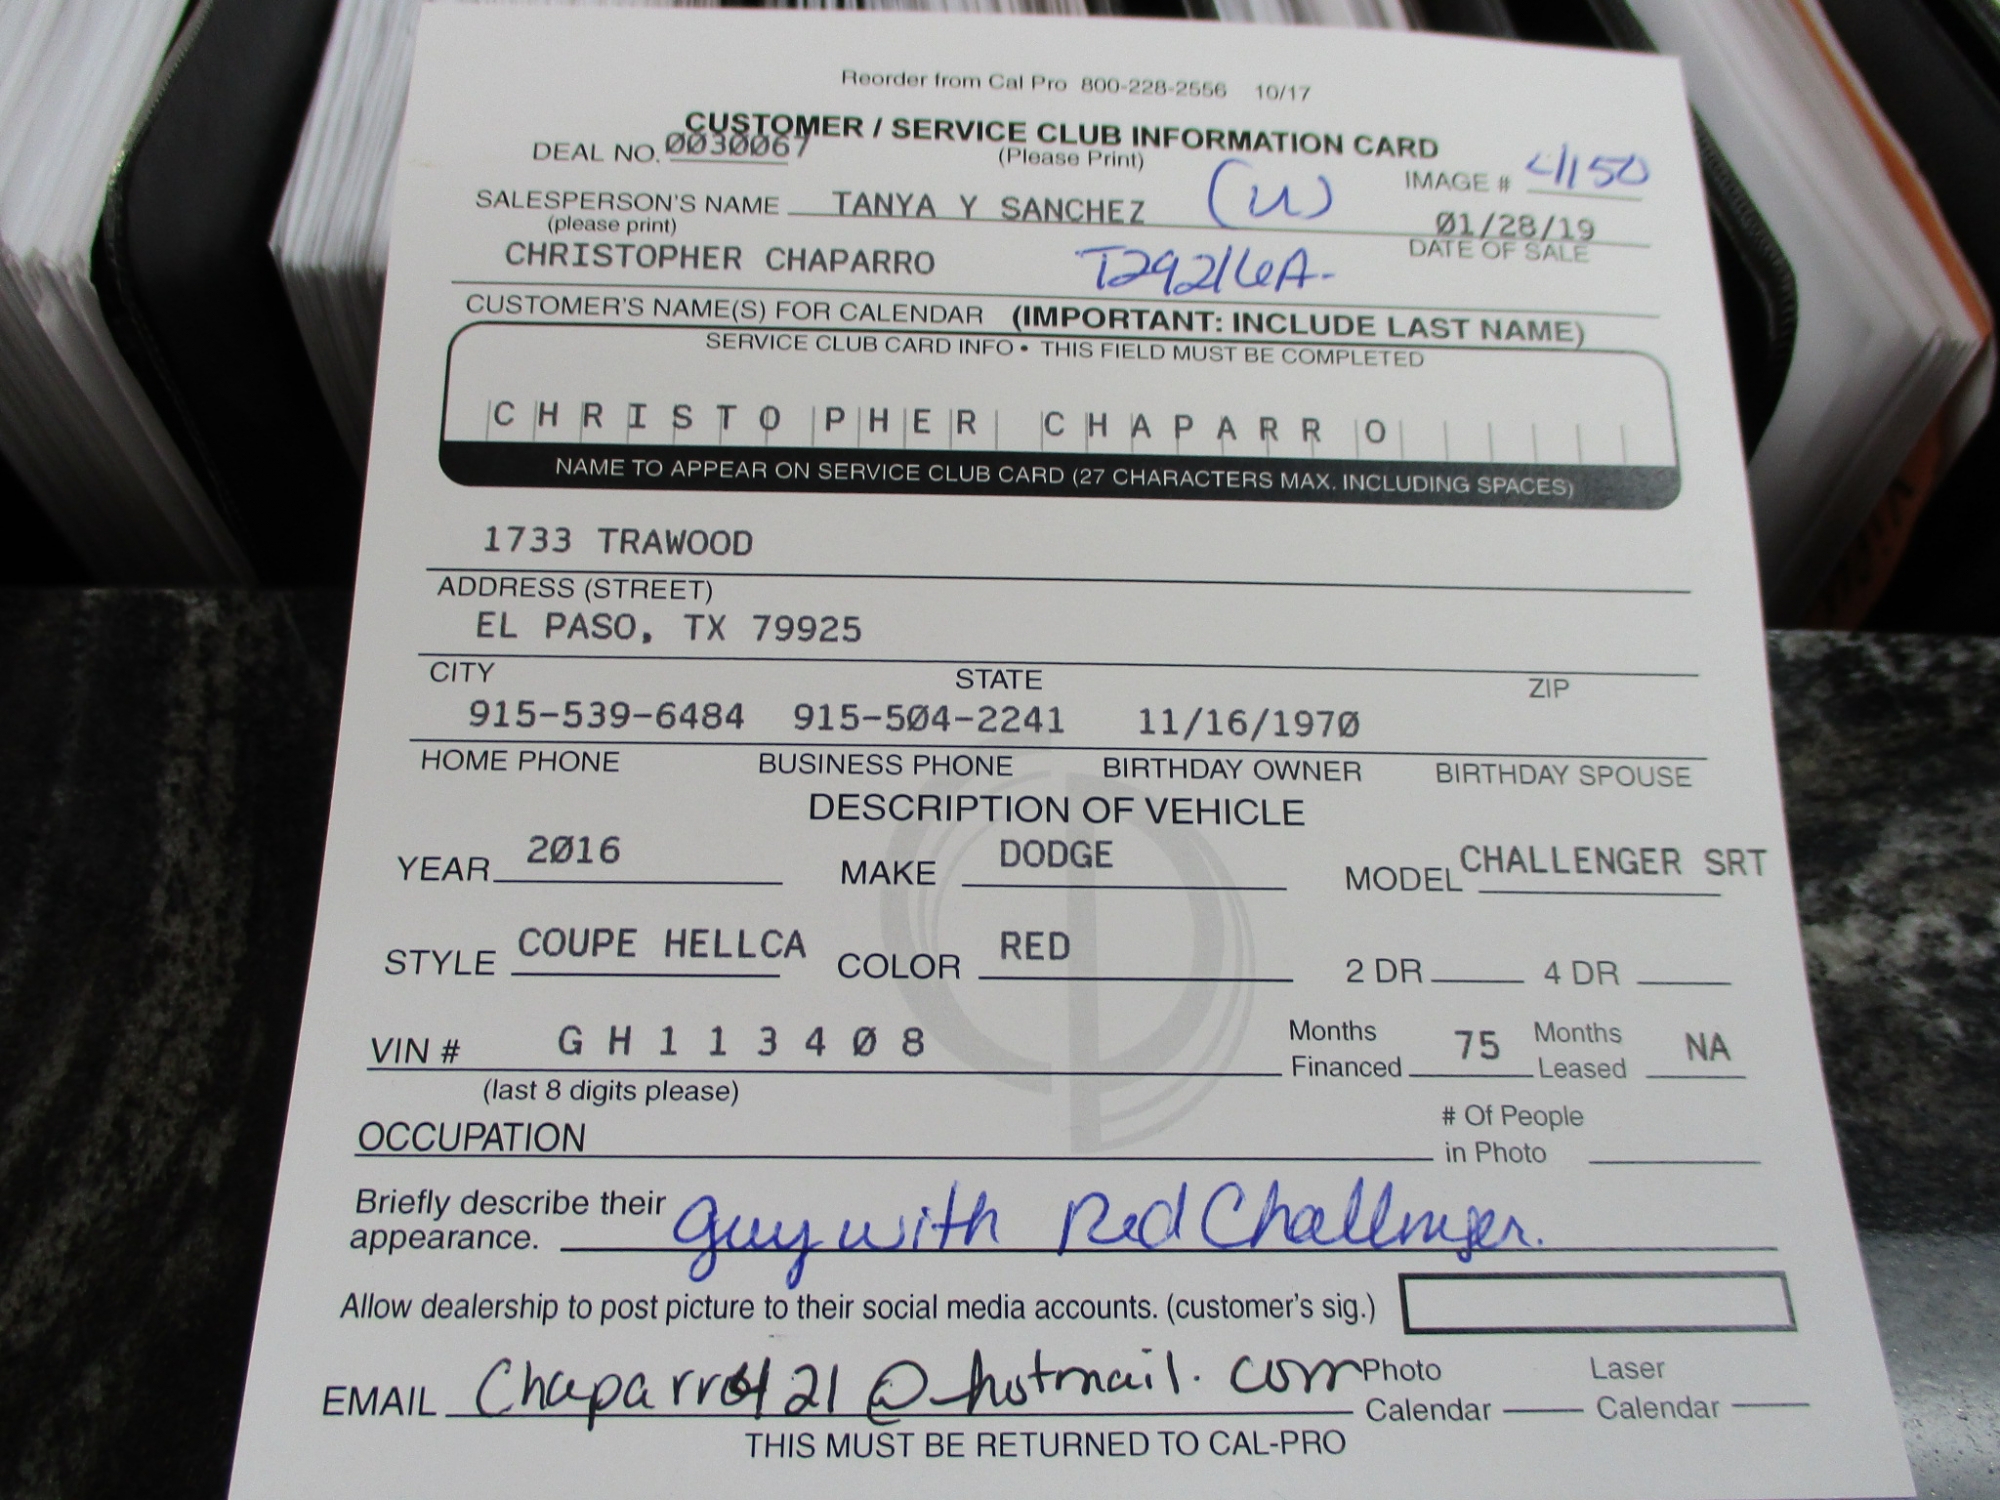 Reorder from Cal Pro 800-228-2556 10/17
CUSTOMER / SERVICE CLUB INFORMATION CARD
DEAL NO. 0030067 (Please Print) IMAGE # 4150
SALESPERSON'S NAME TANYA Y SANCHEZ (U) 01/28/19
(please print) DATE OF SALE
CHRISTOPHER CHAPARRO T29216A-
CUSTOMER'S NAME(S) FOR CALENDAR (IMPORTANT: INCLUDE LAST NAME)
SERVICE CLUB CARD INFO • THIS FIELD MUST BE COMPLETED
CHRISTOPHER CHAPARRO
NAME TO APPEAR ON SERVICE CLUB CARD (27 CHARACTERS MAX. INCLUDING SPACES)
1733 TRAWOOD
ADDRESS (STREET)
EL PASO, TX 79925
CITY STATE ZIP
915-539-6484 915-504-2241 11/16/1970
HOME PHONE BUSINESS PHONE BIRTHDAY OWNER BIRTHDAY SPOUSE
DESCRIPTION OF VEHICLE
YEAR 2016 MAKE DODGE MODEL CHALLENGER SRT
STYLE COUPE HELLCA COLOR RED 2 DR 4 DR
VIN # G H 1 1 3 4 0 8 Months Financed 75 Months Leased NA
(last 8 digits please)
OCCUPATION # Of People in Photo
Briefly describe their appearance. guy with Red Challenger.
Allow dealership to post picture to their social media accounts. (customer's sig.)
EMAIL @hotmail.com Photo Calendar Laser Calendar
THIS MUST BE RETURNED TO CAL-PRO